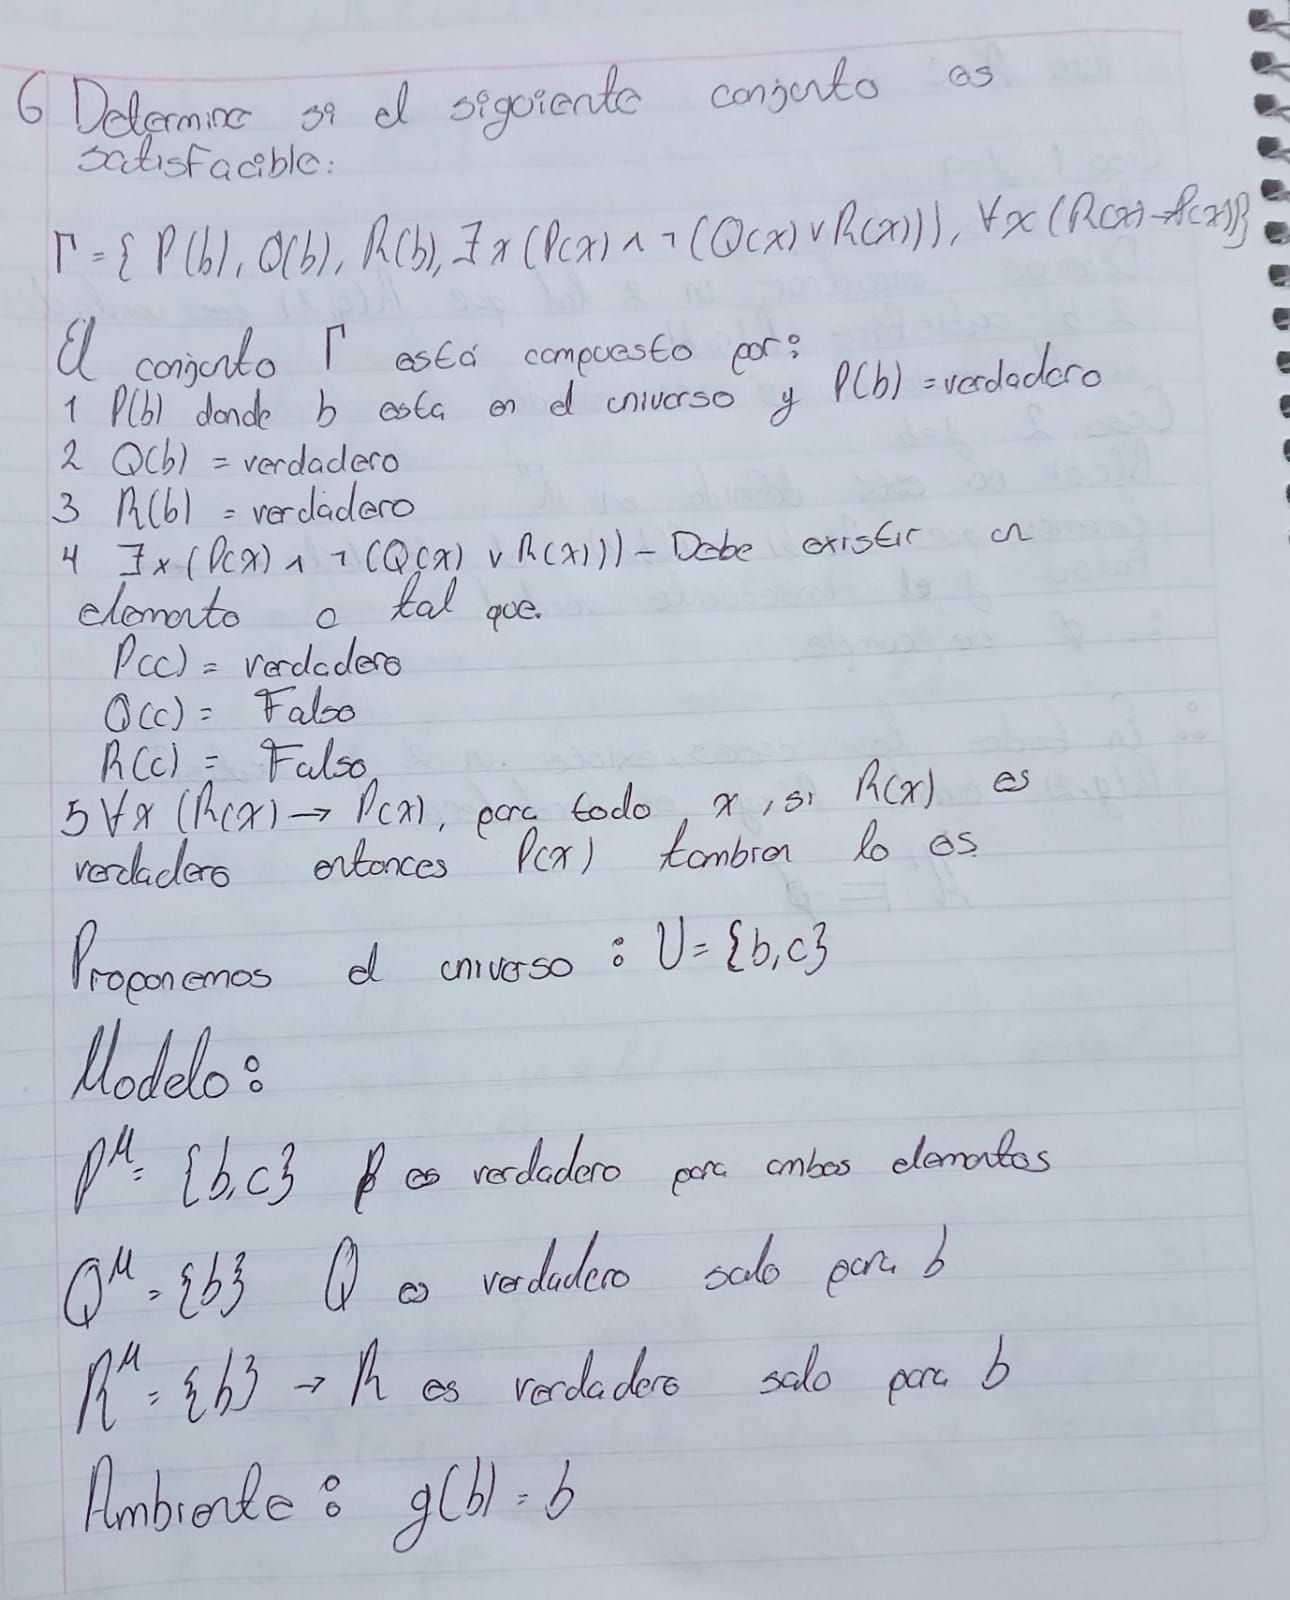 6 Determine si el siguiente conjunto es
satisfacible:
Γ = { P(b), Q(b), R(b), ∃x (P(x) ∧ ¬ (Q(x) ∨ R(x))), ∀x (R(x) → P(x))}
El conjunto Γ está compuesto por:
1 P(b) donde b esta en el universo y P(b) = verdadero
2 Q(b) = verdadero
3 R(b) = verdadero
4 ∃x (P(x) ∧ ¬ (Q(x) ∨ R(x))) - Debe existir un
elemento c tal que.
P(c) = verdadero
Q(c) = Falso
R(c) = Falso
5 ∀x (R(x) → P(x), para todo x, si R(x) es
verdadero entonces P(x) tambien lo es
Proponemos el universo : U = {b, c}
Modelo:
P^M = {b, c} P es verdadero para ambos elementos
Q^M = {b} Q es verdadero solo para b
R^M = {b} → R es verdadero solo para b
Ambiente : g(b) = b